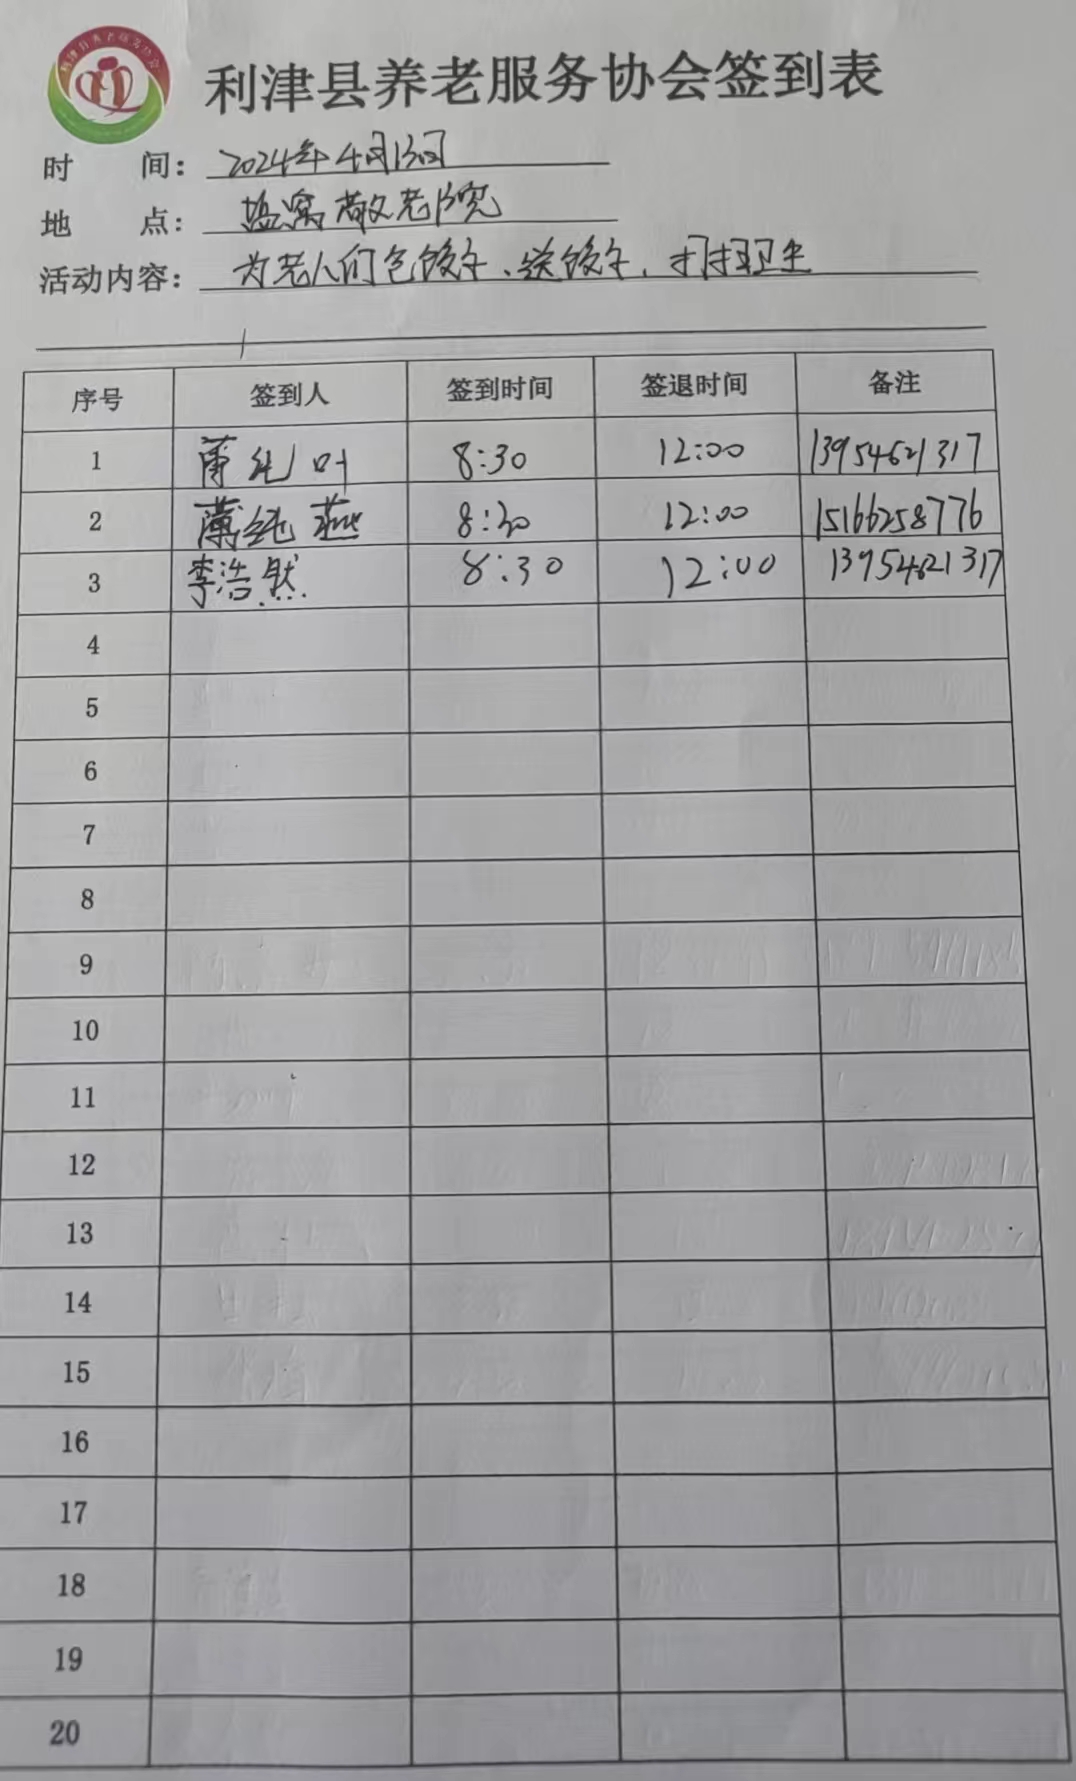 利津县养老服务协会
利津县养老服务协会签到表
时 间：2024年4月13日
地 点：盐窝敬老院
活动内容：为老人们包饺子、送饺子、打扫卫生
序号 签到人 签到时间 签退时间 备注
1 薄纯叶 8:30 12:00 13954621317
2 薄纯燕 8:30 12:00 15166258776
3 李浩然 8:30 12:00 13954621317
4
5
6
7
8
9
10
11
12
13
14
15
16
17
18
19
20